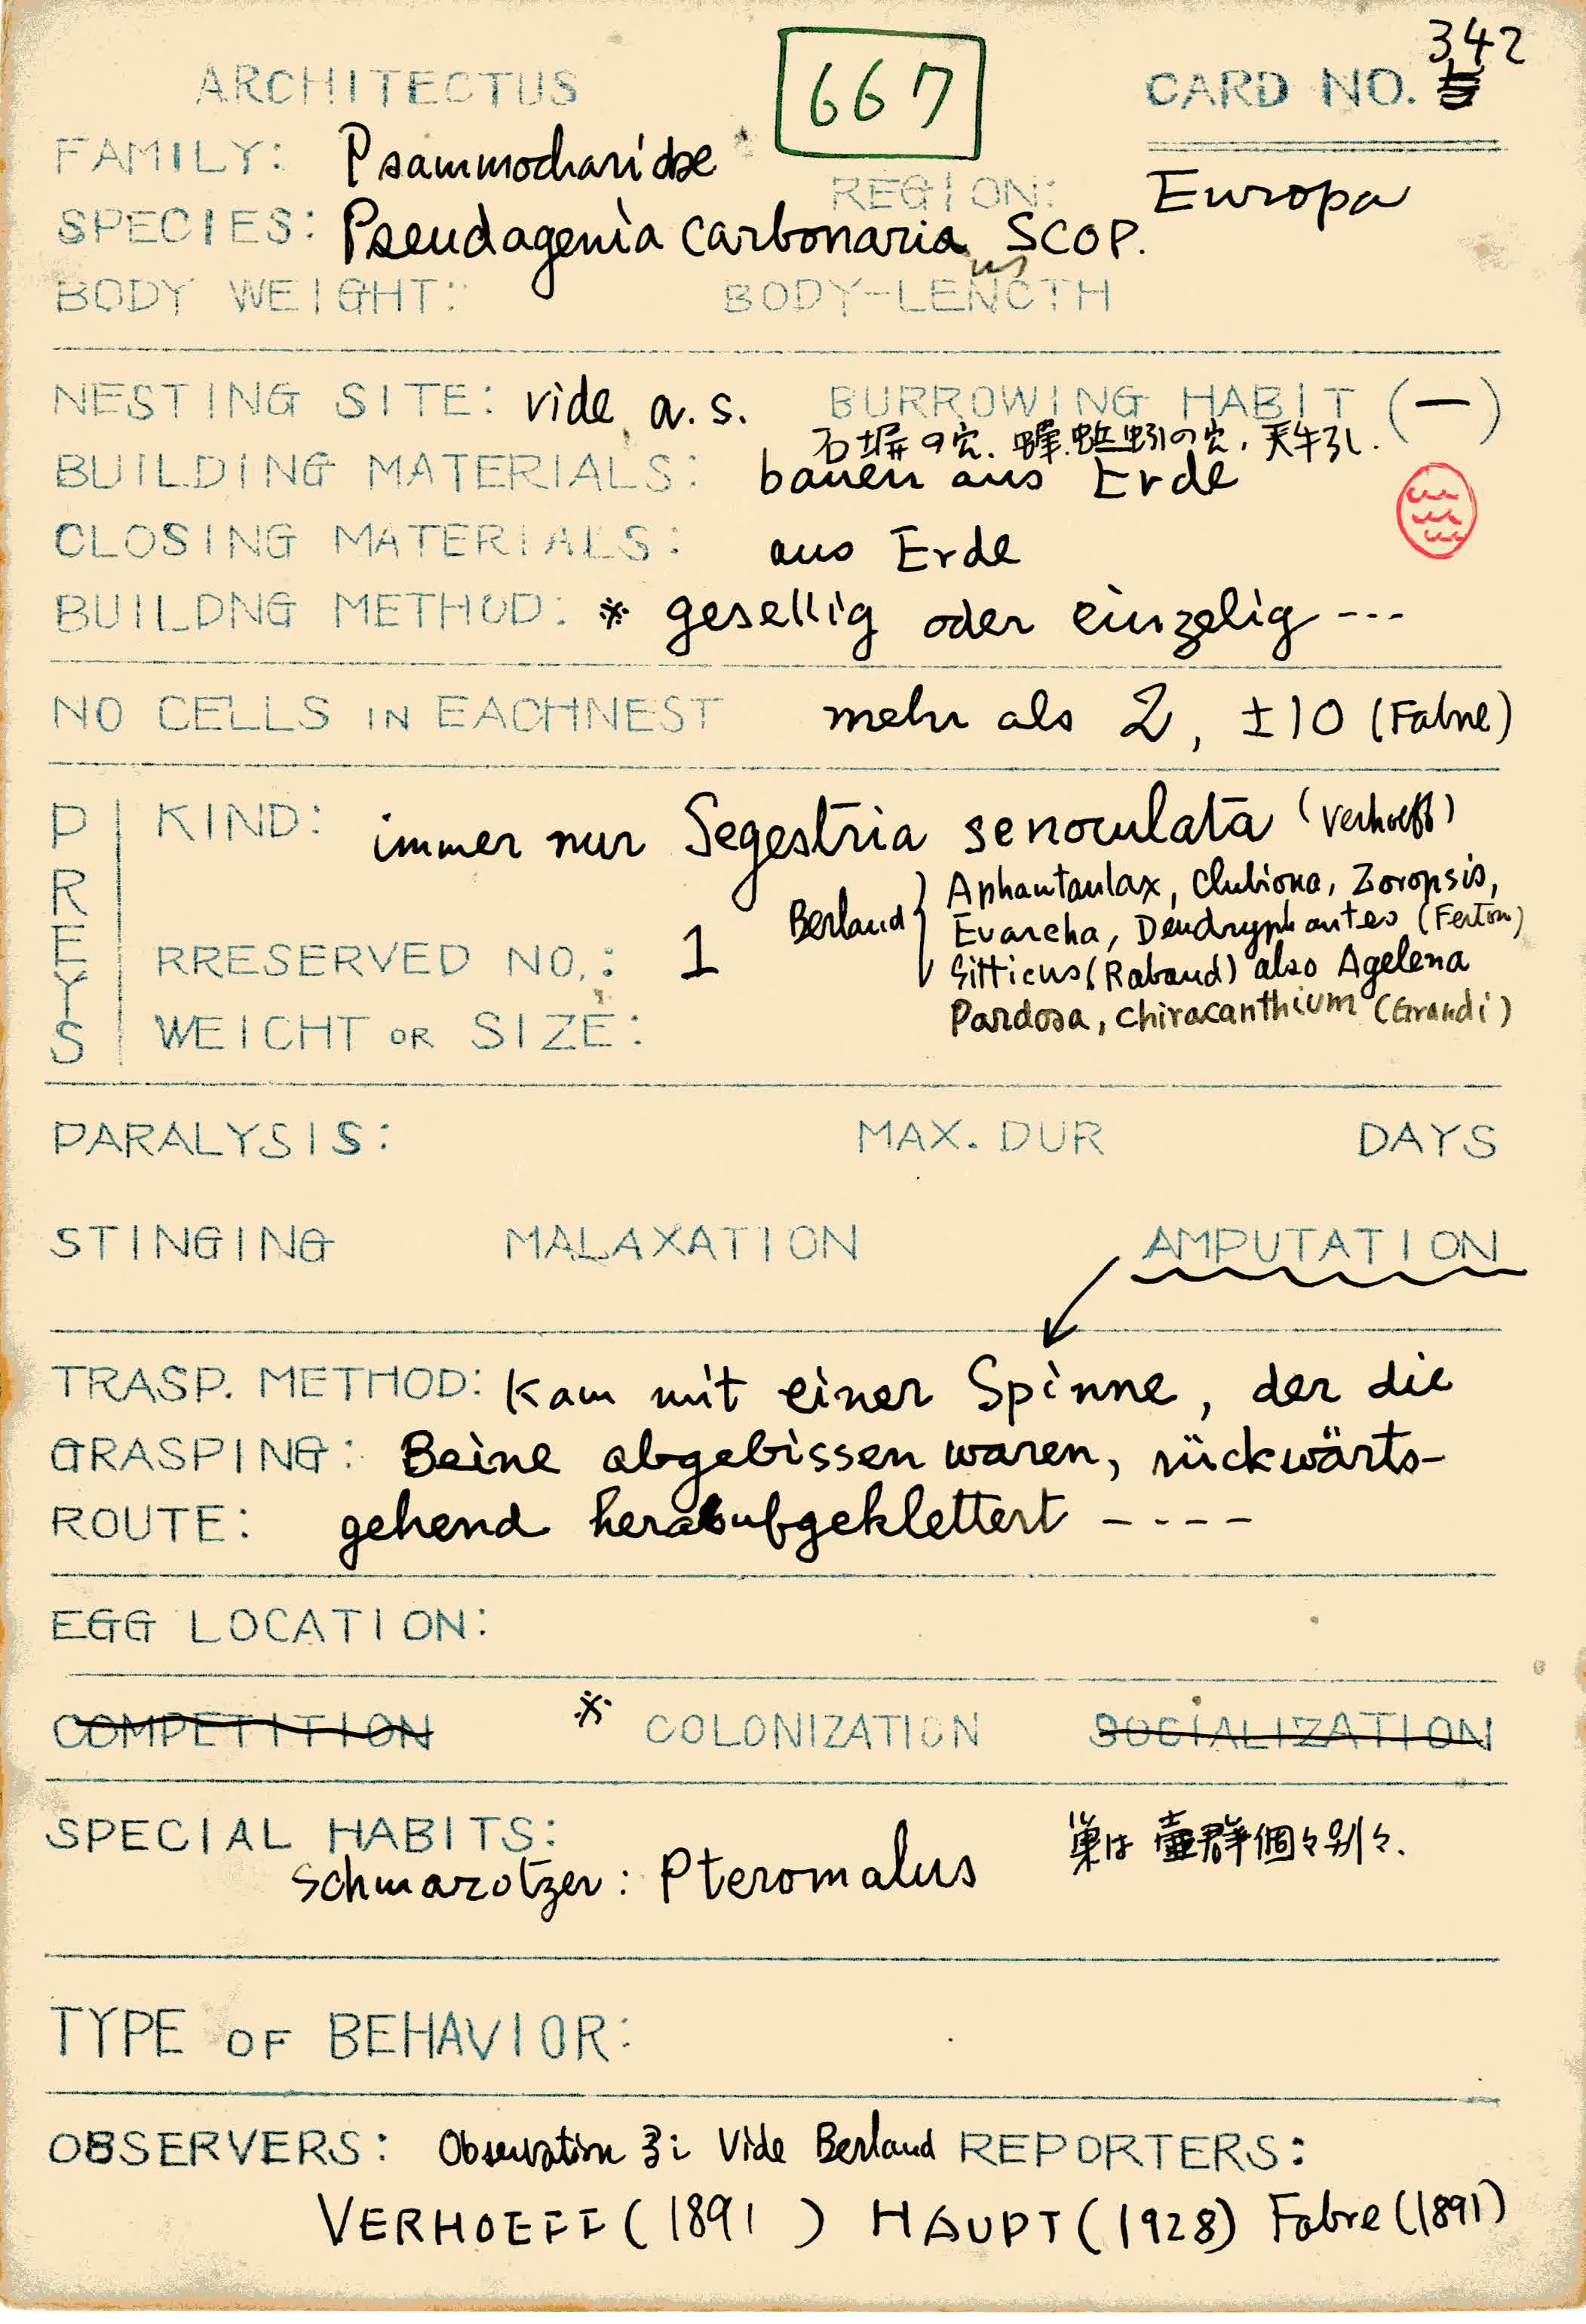 342
ARCHITECTUS 667 CARD NO. 5
FAMILY: Psammocharidae REGION: Europa
SPECIES: Pseudagenia carbonaria SCOP.
us
BODY WEIGHT: BODY-LENGTH
NESTING SITE: vide a.s. BURROWING HABIT (—)
石塀の穴. 蚯蚓の穴, 天牛孔.
BUILDING MATERIALS: bauen aus Erde
CLOSING MATERIALS: aus Erde
BUILDNG METHOD: ※ gesellig oder einzelig ---
NO CELLS IN EACHNEST mehr als 2, ±10 (Fabre)
PREYS
KIND: immer nur Segestria senoculata (Verhoeff)
Berland { Aphantaulax, Clubiona, Zoropsis,
Evarcha, Dendryphantes (Ferton)
RRESERVED NO.: 1 Sitticus (Rabaud) also Agelena
WEIGHT OR SIZE: Pardosa, Chiracanthium (Grandi)
PARALYSIS: MAX. DUR DAYS
STINGING MALAXATION AMPUTATION
TRASP. METHOD: Kam mit einer Spinne, der die
GRASPING: Beine abgebissen waren, rückwärts-
ROUTE: gehend heraufgeklettert ----
EGG LOCATION:
COMPETITION ※ COLONIZATION SOCIALIZATION
SPECIAL HABITS: 巣は壺群個々別々.
Schmarotzer: Pteromalus
TYPE OF BEHAVIOR:
OBSERVERS: Observation 3: Vide Berland REPORTERS:
VERHOEFF (1891) HAUPT (1928) Fabre (1891)